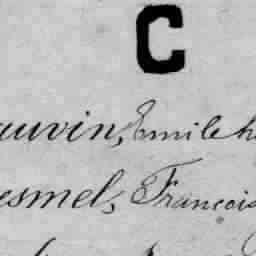 C
auvin, Emile h
esmel, Francois